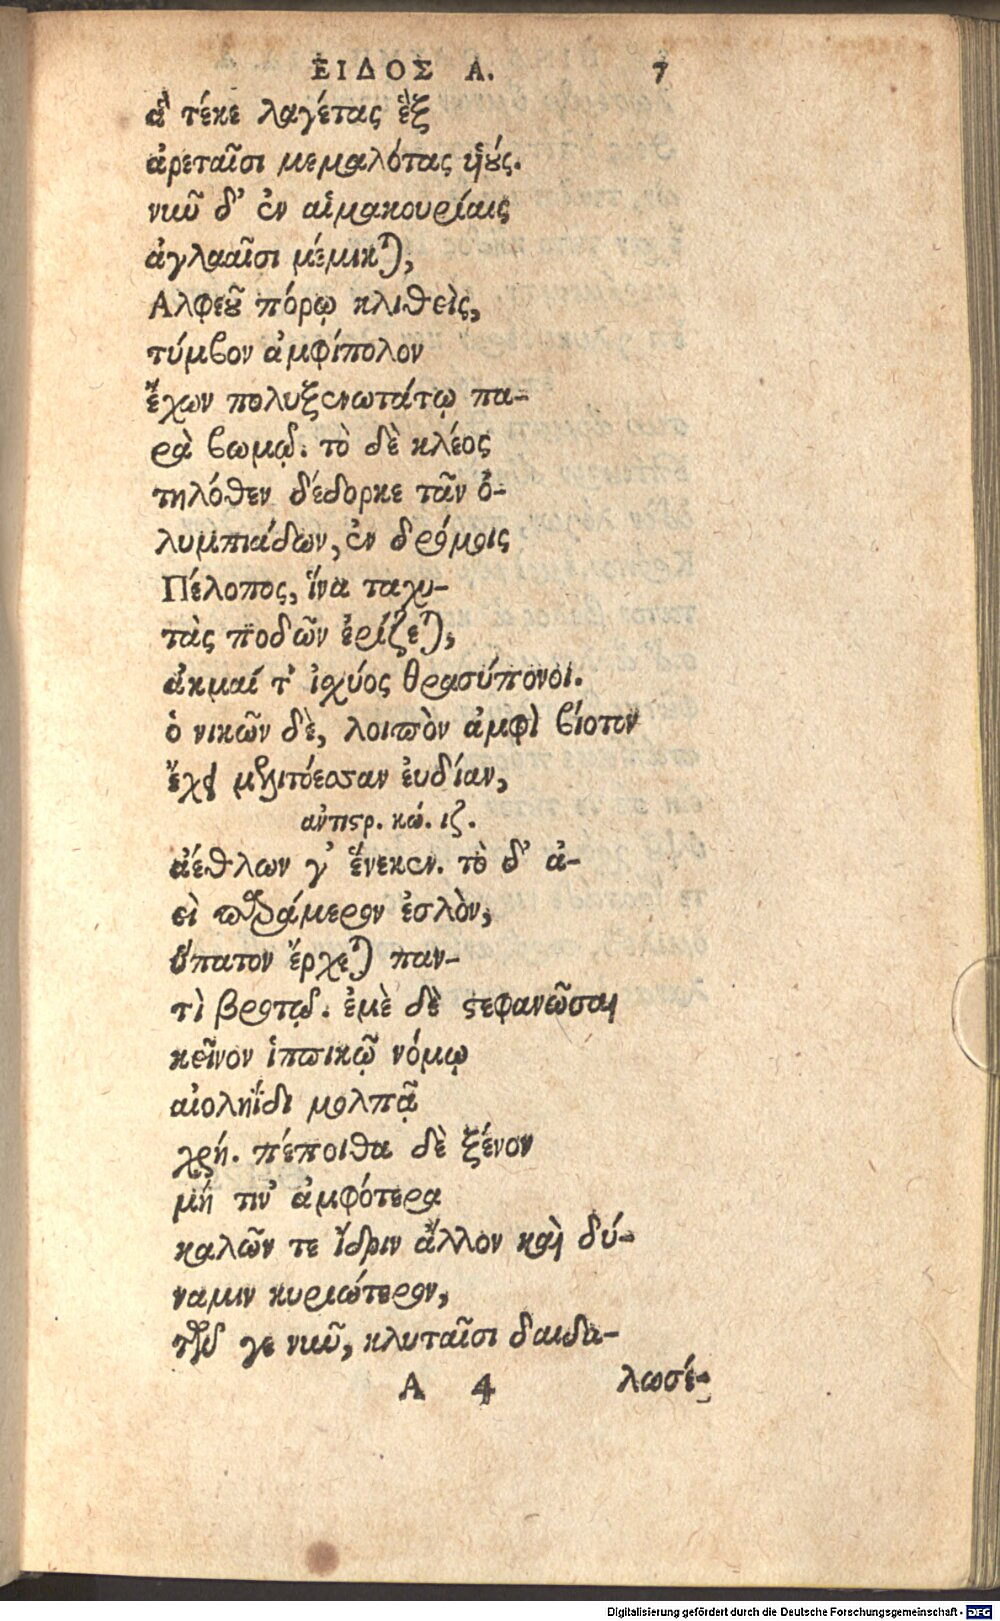 ΕΙΔΟΣ Α. 7
ἃ τέκε λαγέτας ἓξ
ἀρεταῖσι μεμαλότας υἱούς.
νιῦ δ' ἐν αἱμακουρίαις
ἀγλααῖσι μέμικται,
Αλφεοῦ πόρῳ κλιθεὶς,
τύμβον ἀμφίπολον
ἔχων πολυξενωτάτῳ πα-
ρὰ βωμῷ. τὸ δὲ κλέος
τηλόθεν δέδορκε τᾶν ὀ-
λυμπιάδων, ἐν δρόμοις
Πέλοπος, ἵνα ταχυ-
τὰς ποδῶν ἐρίζεται,
ἀκμαί τ' ἰσχύος θρασύπονοι.
ὁ νικῶν δὲ, λοιπὸν ἀμφὶ βίοτον
ἔχει μελιτόεσσαν ἐυδίαν,
αντιστρ. κώ. ιζ.
ἀέθλων γ' ἕνεκεν. τὸ δ' ἀ-
εὶ παράμερον ἐσλὸν,
ὕπατον ἔρχεται παν-
τὶ βροτῷ. ἐμὲ δὲ στεφανῶσαι
κεῖνον ἱππικῷ νόμῳ
αἰοληΐδι μολπᾷ
χρή. πέποιθα δὲ ξένον
μή τιν' ἀμφότερα
καλῶν τε ἴδριν ἄλλον καὶ δύ-
ναμιν κυριώτερον,
τῶν γε νιῦ, κλυταῖσι δαιδα-
Α 4 λωσέ-
Digitalisierung gefördert durch die Deutsche Forschungsgemeinschaft - DFG